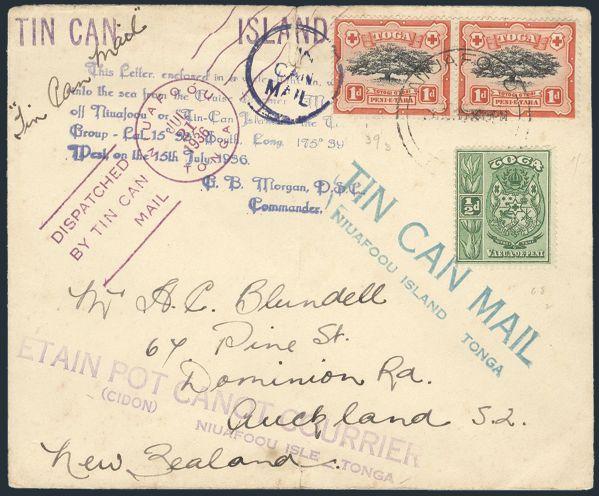 TIN CAN ISLAND
"Tin Can Mail"
This Letter, enclosed in
into the sea from the
off Niuafoou or Tin-Can
Group - Lat. 15° South, Long. 175°
West, on the 15th July 1936.
G. B. Morgan,
Commander.
TIN
CAN
MAIL
NIUAFOOU
1936
TONGA
DISPATCHED
BY TIN CAN
MAIL
TOGA
1d 1d
PENI-E-TAHA
TOGA
1d 1d
PENI-E-TAHA
TOGA
½d
VAEUA-OE-PENI
TIN CAN MAIL
NIUAFOOU ISLAND TONGA
Mr H. C. Blundell
64 Pine St.
Dominion Rd.
Auckland S.2.
New Zealand.
ETAIN POT CANOT COURRIER
(CIDON) NIUAFOOU ISLE TONGA